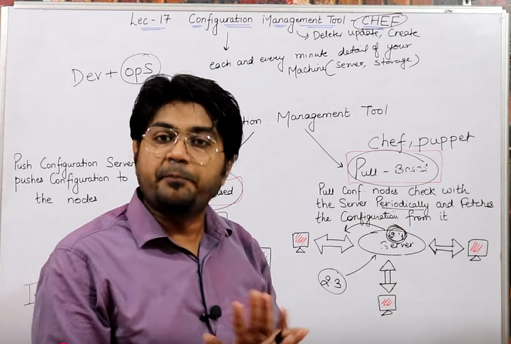 Lec-17 Configuration Management Tool - CHEF
Delete, update, Create
each and every minute detail of your
Machine (server, storage)
Dev + ops
Management Tool
Chef, puppet
Push Configuration Server
pushes Configuration to
the nodes
Pull - Based
Pull Conf. nodes Check with
the Server Periodically and Fetches
the Configuration from it
Server
23